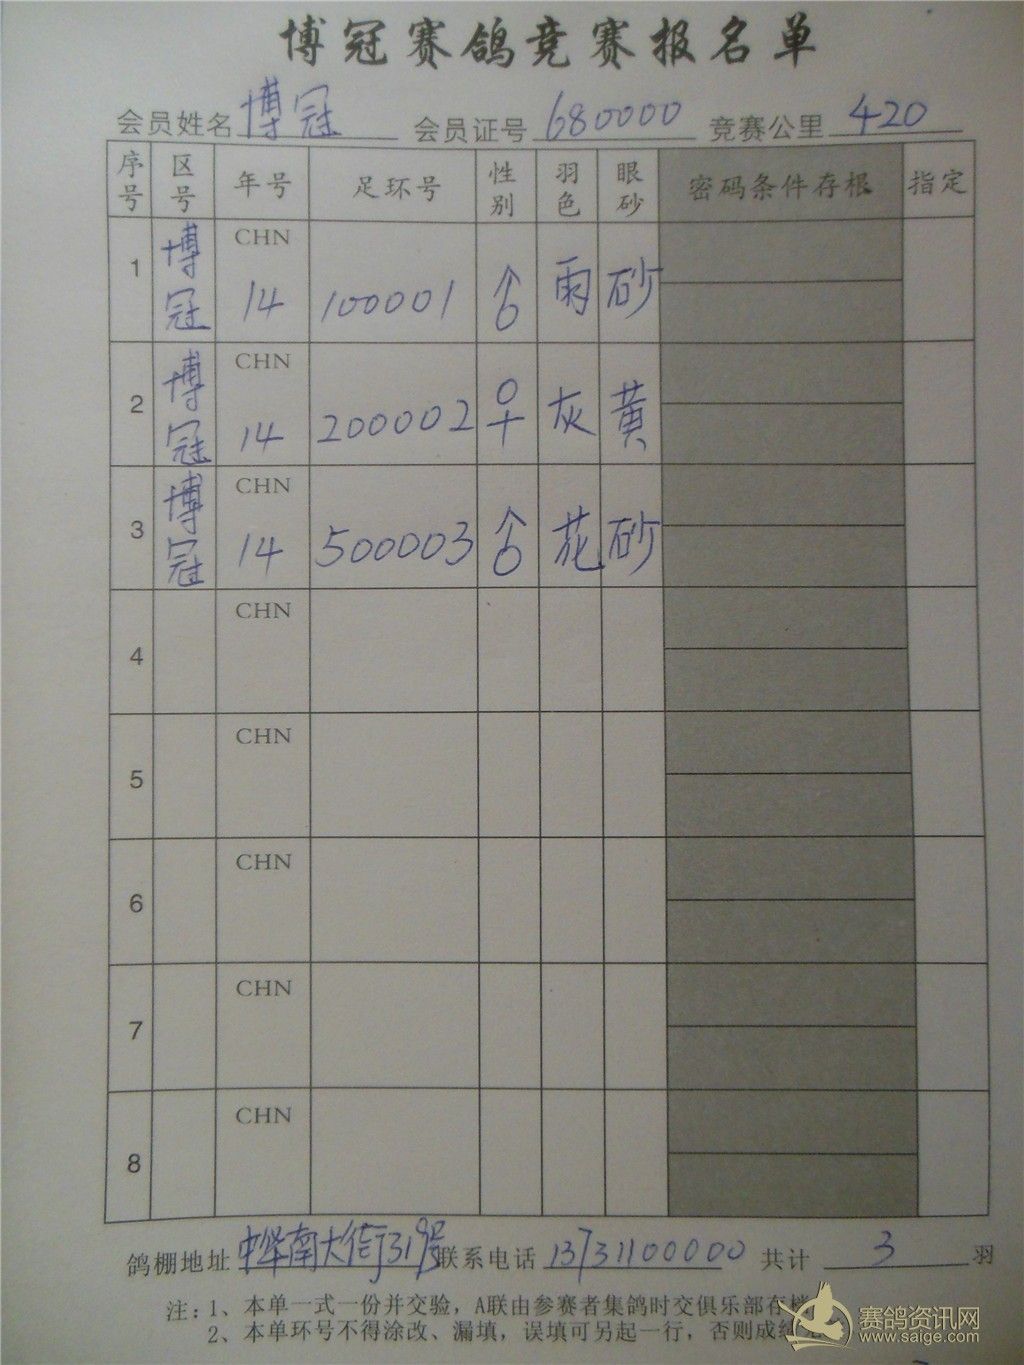 博冠赛鸽竞赛报名单
会员姓名 博冠 会员证号 680000 竞赛公里 420
序号 区号 年号 足环号 性别 羽色 眼砂 密码条件存根 指定
1 博冠 CHN 14 100001 ♂ 雨 砂
2 博冠 CHN 14 200002 ♀ 灰 黄
3 博冠 CHN 14 500003 ♂ 花 砂
4 CHN
5 CHN
6 CHN
7 CHN
8 CHN
鸽棚地址 中华南大街319号 联系电话 13731100000 共计 3 羽
注：1、本单一式一份并交验，A联由参赛者集鸽时交俱乐部存档
2、本单环号不得涂改、漏填，误填可另起一行，否则成绩无
赛鸽资讯网
www.saige.com